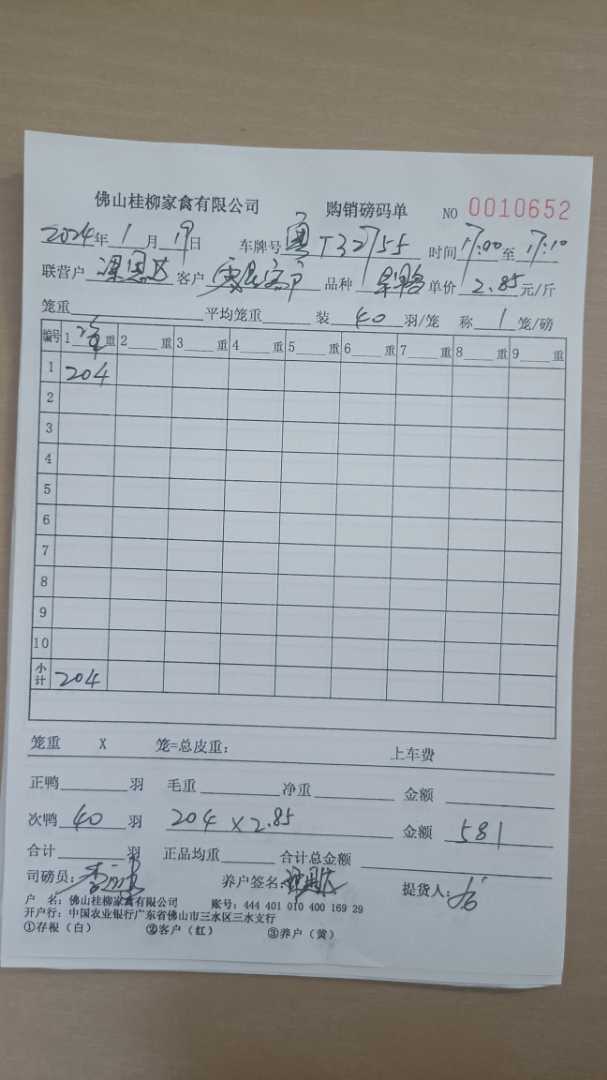 佛山桂柳家禽有限公司 购销磅码单 NO 0010652
2024年1月19日 车牌号 粤T32755 时间17:00至17:10
联营户 客户 品种 单价2.85元/斤
笼重 平均笼重 装40羽/笼 称1笼/磅
编号 1 重 2 重 3 重 4 重 5 重 6 重 7 重 8 重 9 重
1 204
2
3
4
5
6
7
8
9
10
小计 204
笼重 X 笼=总皮重： 上车费
正鸭 羽 毛重 净重 金额
次鸭 40 羽 204×2.85 金额 581
合计 羽 正品均重 合计总金额
司磅员： 养户签名： 提货人：
户 名：佛山桂柳家禽有限公司 账号：444 401 010 400 169 29
开户行：中国农业银行广东省佛山市三水区三水支行
①存根（白） ②客户（红） ③养户（黄）